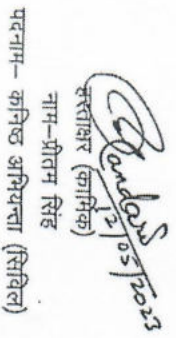 12/05/2023
हस्ताक्षर (कार्मिक)
नाम–प्रीतम सिंह
पदनाम– कनिष्ठ अभियन्ता (सिविल)